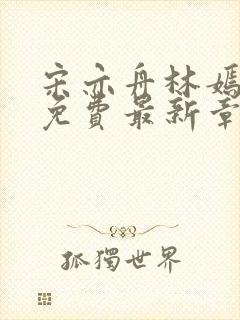 宋亦舟林嫣
免費最新章
孤獨世界